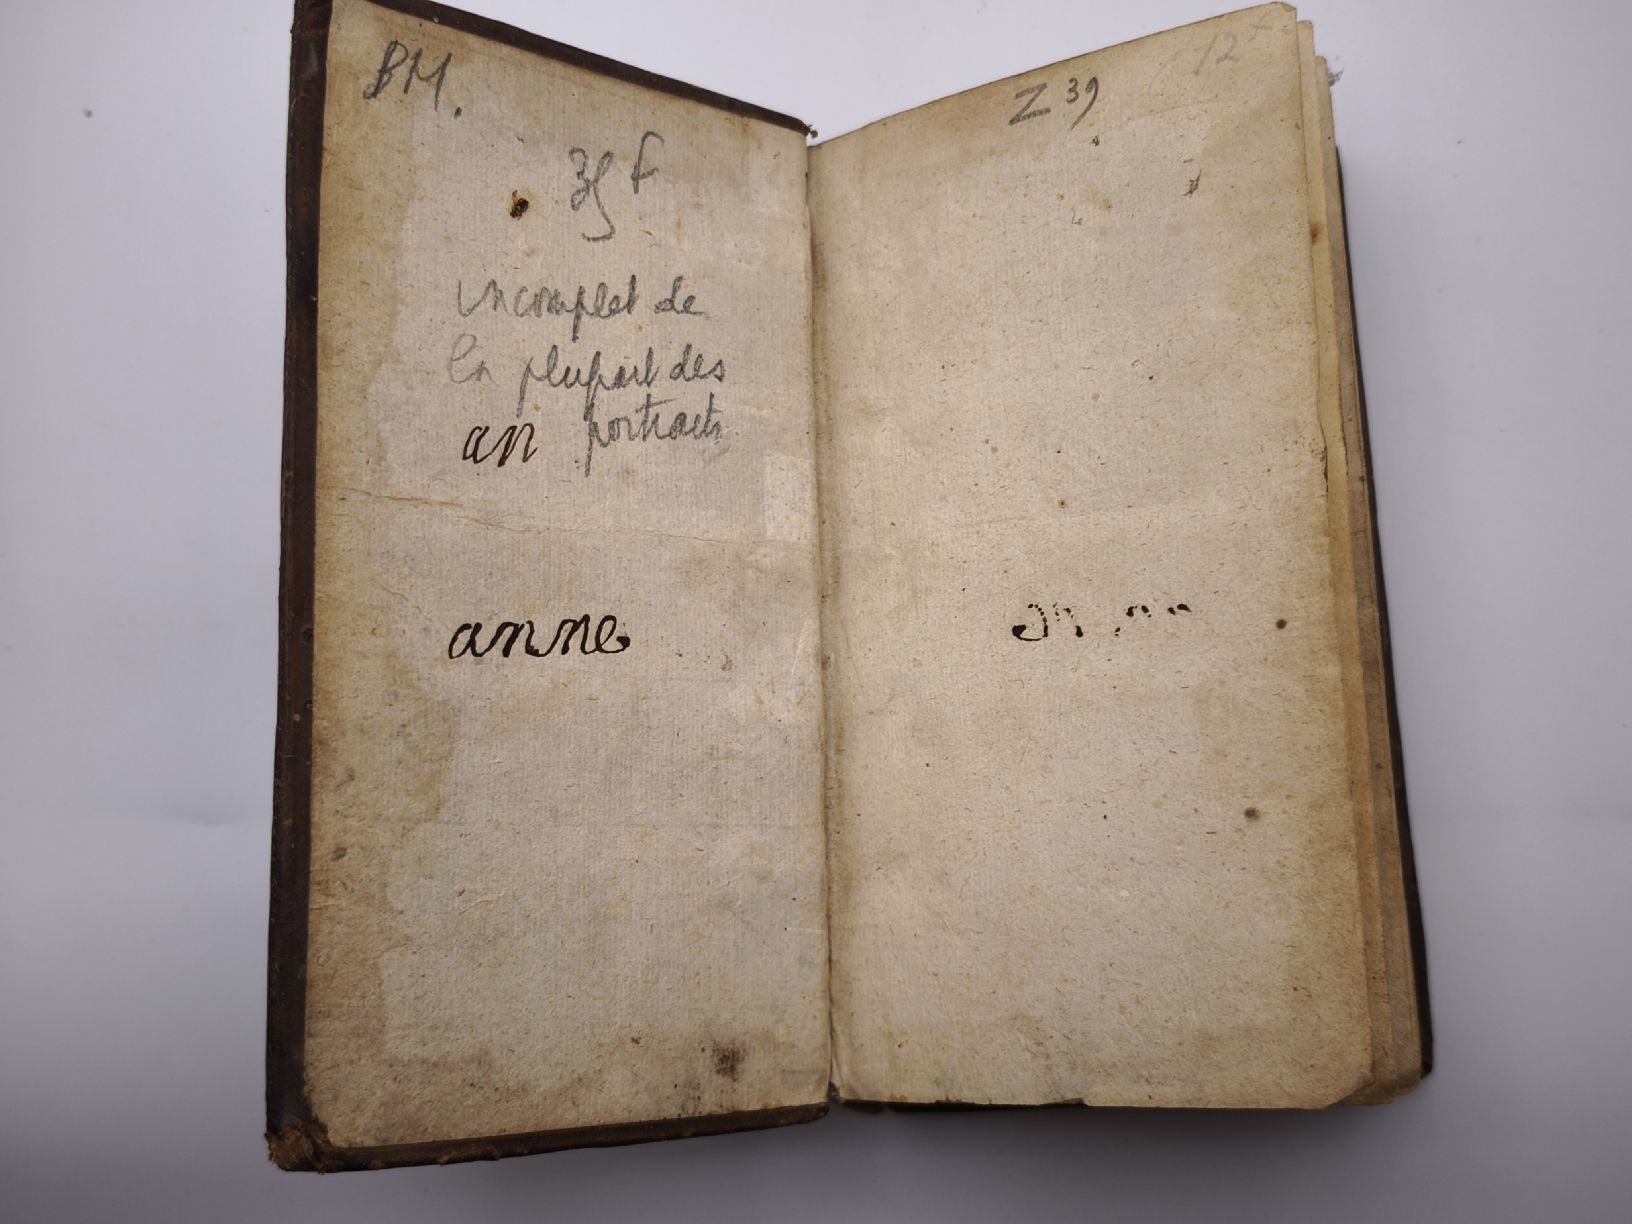 BM.
35 f
incomplet de
la plupart des
portraits
an
anne
Z 39
12